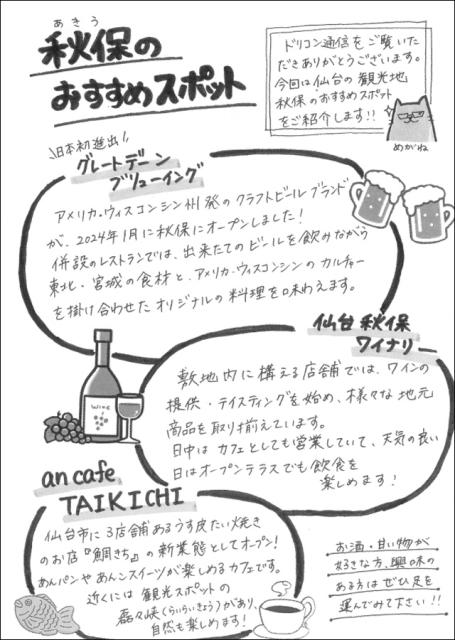 あきう
秋保の
おすすめスポット
ドリコン通信をご覧いた
だきありがとうございます。
今回は仙台の観光地
秋保のおすすめスポット
をご紹介します!!
めがね
\日本初進出/
グレートデーン
ブリューイング
アメリカ・ウィスコンシン州発のクラフトビールブランド
が、2024年1月に秋保にオープンしました!
併設のレストランでは、出来たてのビールを飲みながら
東北・宮城の食材と、アメリカ・ウィスコンシンのカルチャー
を掛け合わせたオリジナルの料理を味わえます。
仙台秋保
ワイナリー
敷地内に構える店舗では、ワインの
提供・テイスティングを始め、様々な地元
商品を取り揃えています。
日中はカフェとしても営業していて、天気の良い
日はオープンテラスでも飲食を
楽しめます!
WINE
an cafe
TAIKICHI
仙台市に3店舗あるうす皮たい焼き
のお店『鯛きち』の新業態としてオープン!
あんパンやあんこスイーツが楽しめるカフェです。
近くには観光スポットの
磊々峡(らいらいきょう)があり、
自然も楽しめます!
お酒・甘い物が
好きな方、興味の
ある方はぜひ足を
運んでみて下さい!!